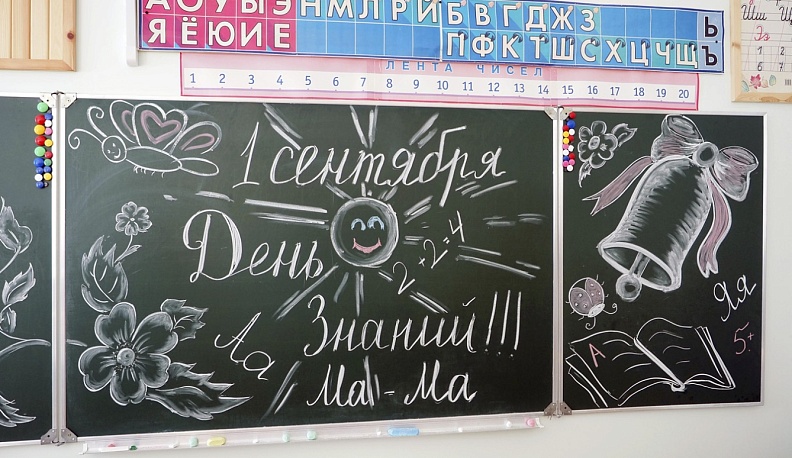 АОУЫЭНМЛРЙБВГДЖЗ Ь
ЯЁЮИЕ ПФКТШСХЦЧЩЪ
ЛЕНТА ЧИСЕЛ
1 2 3 4 5 6 7 8 9 10 11 12 13 14 15 16 17 18 19 20
1 сентября
День
2+2=4
Знаний!!!
Аа
Ма-Ма
Яя
А
5+